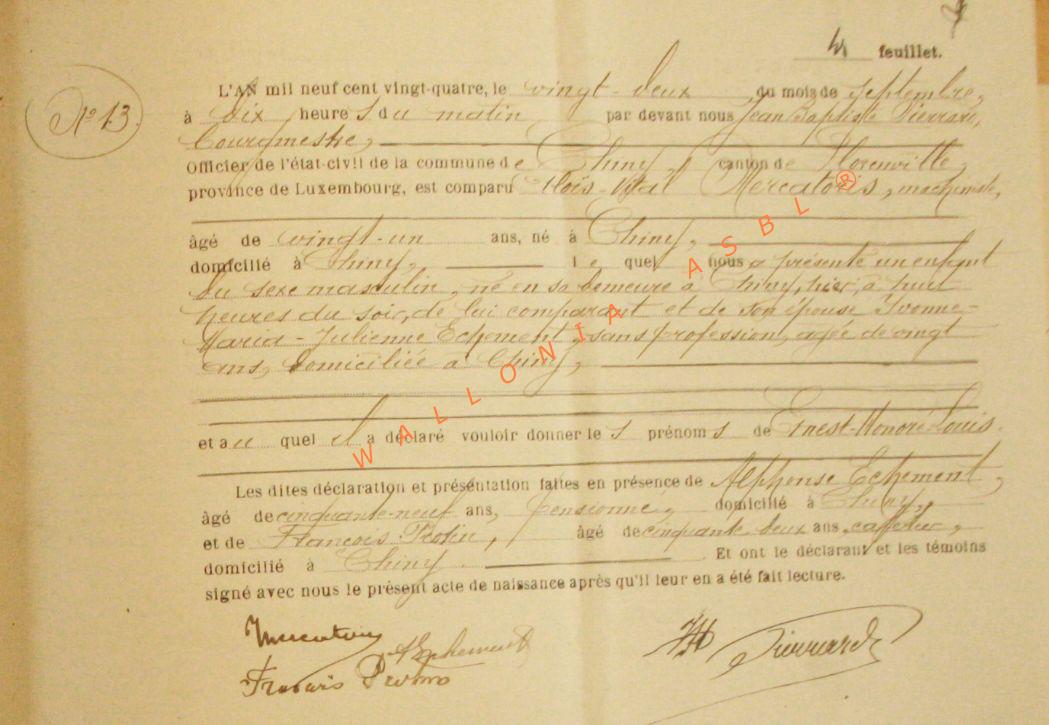 4 feuillet.
N° 13.
L'AN mil neuf cent vingt-quatre, le vingt-deux du mois de septembre,
à dix heures du matin par devant nous Jean Baptiste Pierrard,
bourgmestre,
Officier de l'état-civil de la commune de Chiny, canton de Florenville
province de Luxembourg, est comparu Aloïs-Vital Mercatoris, machiniste,
âgé de vingt-un ans, né à Chiny,
domicilié à Chiny, le quel nous a présenté un enfant
du sexe masculin, né en sa demeure à Chiny, hier, à huit
heures du soir, de lui comparant et de son épouse Yvonne-
Maria-Julienne Echement, sans profession, agée de vingt
ans, domiciliée à Chiny,
et au quel il a déclaré vouloir donner les prénoms de Ernest-Honoré-Louis.
Les dites déclaration et présentation faites en présence de Alphonse Echement,
âgé de cinquante-neuf ans, pensionné, domicilié à Chiny,
et de François, âgé de cinquante deux ans,
domicilié à Chiny. Et ont le déclarant et les témoins
signé avec nous le présent acte de naissance après qu'il leur en a été fait lecture.
AEchement Pierrard
WALLONIA ASBL ®